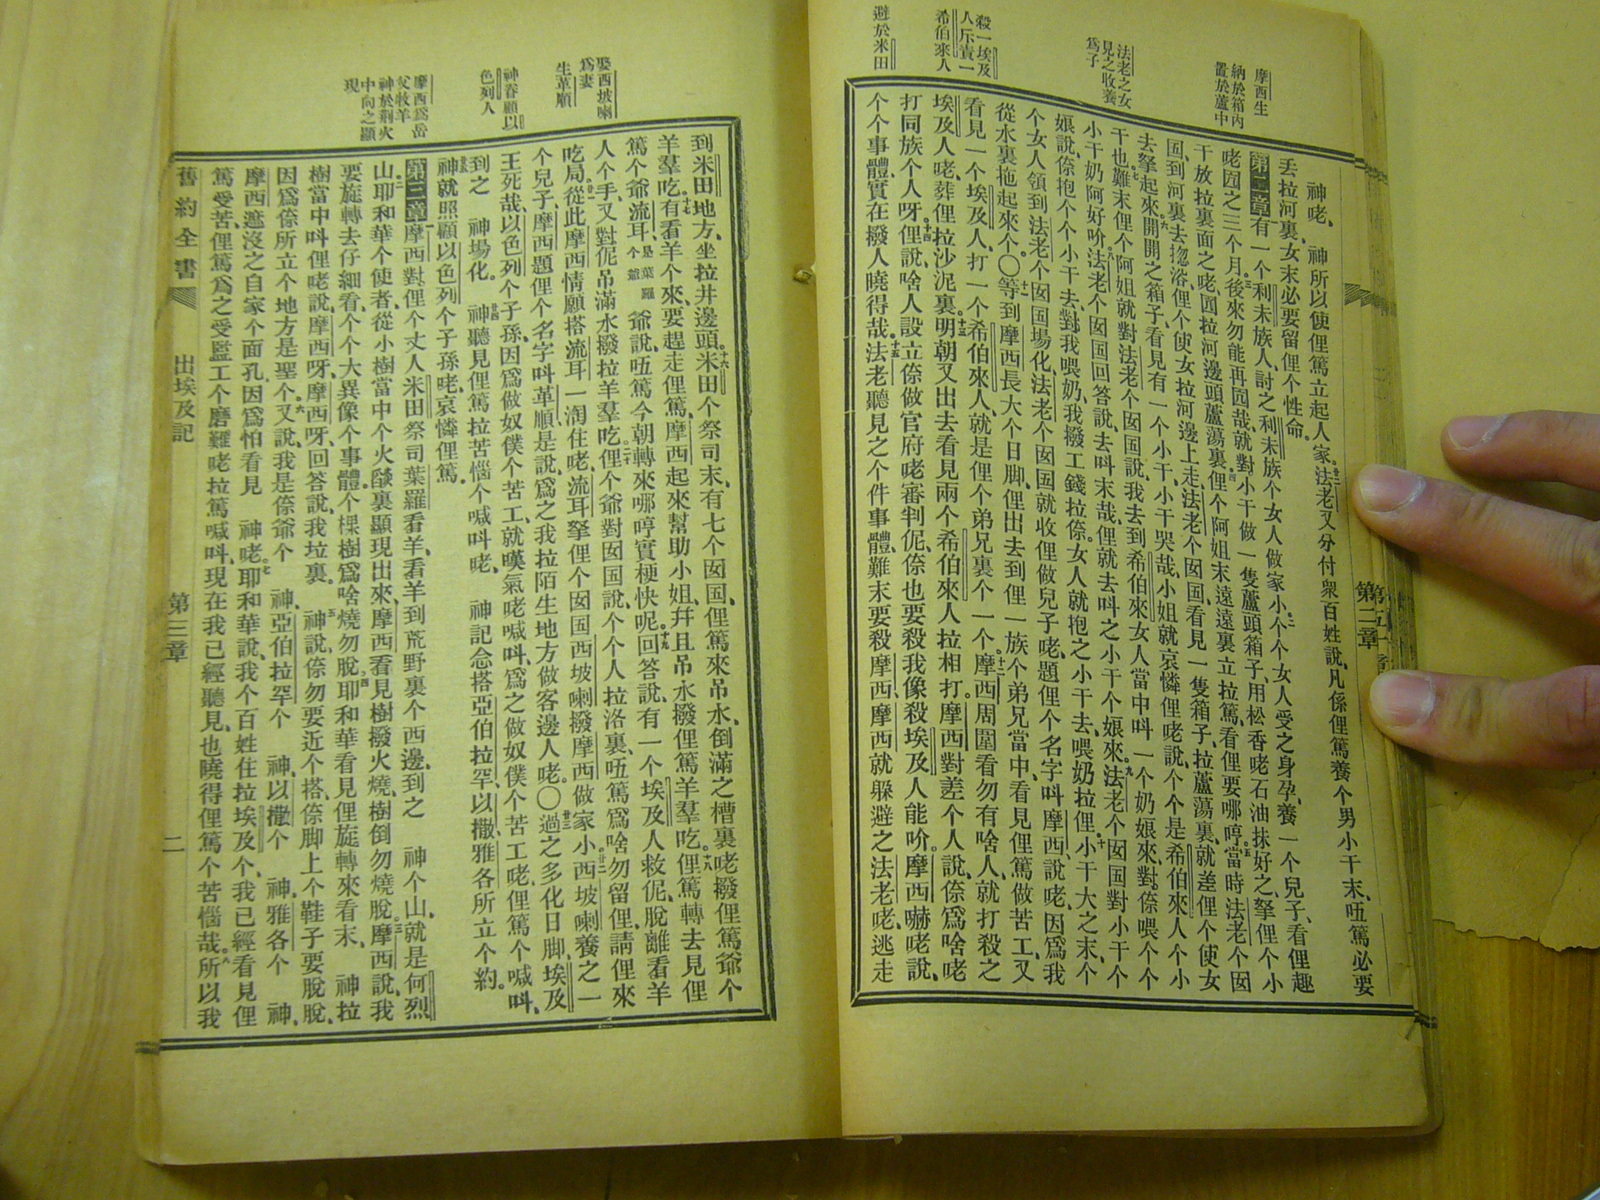 摩西生
納於箱內
置於蘆中
法老之女
見之收養
爲子
殺一埃及
人斥責一
希伯來人
避於米田
神咾、神所以使俚篤立起人家、法老又分付衆百姓說、凡係俚篤養个男小干末、㑚篤必要
丢拉河裏、女末必要留俚个性命。
第二章有一个利未族人、討之利未族个女人做家小、个个女人受之身孕、養一个兒子、看俚趣
咾囥之三个月、後來勿能再囥哉、就對小干做一隻蘆頭箱子、用松香咾石油抹好之、拏俚个小
干放拉裏面之咾囥拉河邊頭蘆蕩裏、俚个阿姐末遠遠裏立拉篤、看俚要哪哼當時法老个囡
囯到河裏去揔浴、俚个使女拉河邊上走、法老个囡囯、看見一隻箱子、拉蘆蕩裏、就差俚个使女
去拏起來、開開之箱子、看見有一个小干、小干哭哉、小姐就哀憐俚咾說、个个是希伯來人个小
干也難末俚个阿姐就對法老个囡囯說、我去到希伯來女人當中呌一个奶娘來、對倷喂个个
小干奶阿好吤、法老个囡囯回答說、去呌末哉、俚就去呌之小干个娘來、法老个囡囯對小干个
娘說、倷抱个个小干去、對我喂奶、我撥工錢拉倷、女人就抱之小干去、喂奶拉俚、小干大之末、个
个女人領到法老个囡囯場化、法老个囡囯就收俚做兒子咾、題俚个名字呌摩西、說咾、因爲我
從水裏拖起來个〇等到摩西長大个日脚、俚出去到俚一族个弟兄當中、看見俚篤做苦工、又
看見一个埃及人、打一个希伯來人、就是俚个弟兄裏个一个、摩西周圍看勿有啥人、就打殺之
埃及人咾、葬俚拉沙泥裏、明朝又出去看見兩个希伯來人拉相打、摩西對差个人說、倷爲啥咾
打同族个人呀、俚說、啥人設立倷做官府咾審判伲、倷也要殺我像殺埃及人能吤、摩西嚇咾說、
个个事體、實在撥人曉得哉、法老聽見之个件事體、難末要殺摩西摩西就躲避之法老咾、逃走
娶西坡喇
爲妻
生革順
神眷顧以
色列人
摩西爲岳
父牧羊
神於荆火
中向之顯
現
到米田地方、坐拉井邊頭、米田个祭司末、有七个囡囯、俚篤來吊水、倒滿之槽裏咾撥俚篤爺个
羊羣吃、有看羊个來、要趕走俚篤、摩西起來幫助小姐、幷且吊水撥俚篤羊羣吃、俚篤轉去見俚
篤个爺流耳、是葉羅个爺 爺說、㑚篤今朝轉來哪哼實梗快呢、回答說、有一个埃及人救伲、脫離看羊
人个手、又對伲吊滿水撥拉羊羣吃、俚个爺對囡囯說、个个人拉洛裏、㑚篤爲啥勿留俚、請俚來
吃局、從此摩西情願搭流耳一淘住咾、流耳拏俚个囡囯西坡喇撥摩西做家小、西坡喇養之一
个兒子、摩西題俚个名字呌革順、是說爲之我拉陌生地方做客邊人咾。〇過之多化日脚、埃及
王死哉、以色列个子孫、因爲做奴僕个苦工、就嘆氣咾喊呌、爲之做奴僕个苦工咾、俚篤个喊呌、
到之 神場化、神聽見俚篤拉苦惱个喊呌咾、神記念搭亞伯拉罕、以撒、雅各所立个約。
神就照顧以色列个子孫咾、哀憐俚篤
第三章 摩西對俚个丈人米田祭司葉羅看羊、看羊到荒野裏个西邊、到之 神个山、就是何烈
山、耶和華个使者、從小樹當中个火燄裏顯現出來、摩西看見樹撥火燒、樹倒勿燒脫、摩西說、我
要旋轉去仔細看、个个大異像个事體、个棵樹爲啥燒勿脫、耶和華看見俚旋轉來看末、神拉
樹當中呌俚咾說、摩西呀、摩西呀、回答說、我垃裏、神說、倷勿要近个搭、倷脚上个鞋子要脫脫、
因爲倷所立个地方是聖个、又說、我是倷爺个 神、亞伯拉罕个 神、以撒个 神、雅各个 神、
摩西遮沒之自家个面孔、因爲怕看見 神咾、耶和華說、我个百姓住拉埃及个、我已經看見俚
篤受苦、俚篤爲之受監工个磨難咾拉篤喊呌、現在我已經聽見、也曉得俚篤个苦惱哉、所以我
舊約全書
出埃及記
第三章
二
第二章